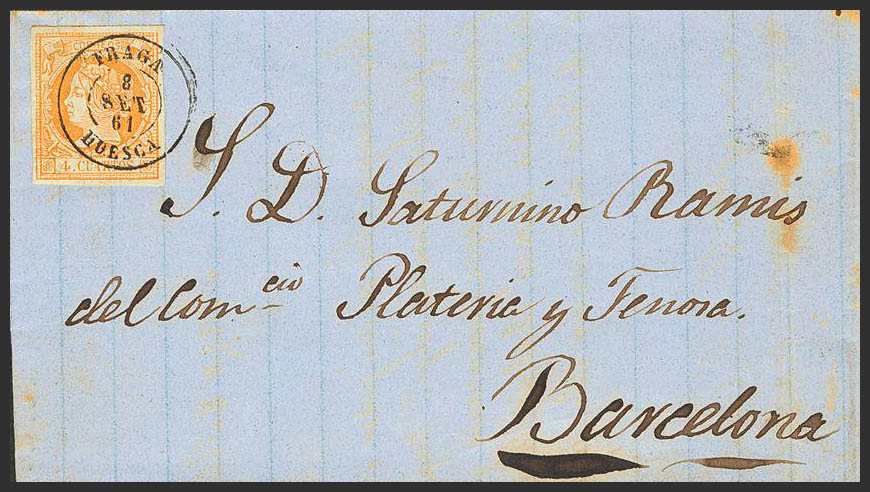 FRAGA
8
SET
61
HUESCA
4 CUARTOS
S. D. Saturnino Ramis
del Com.cio Plateria y Tenora.
Barcelona